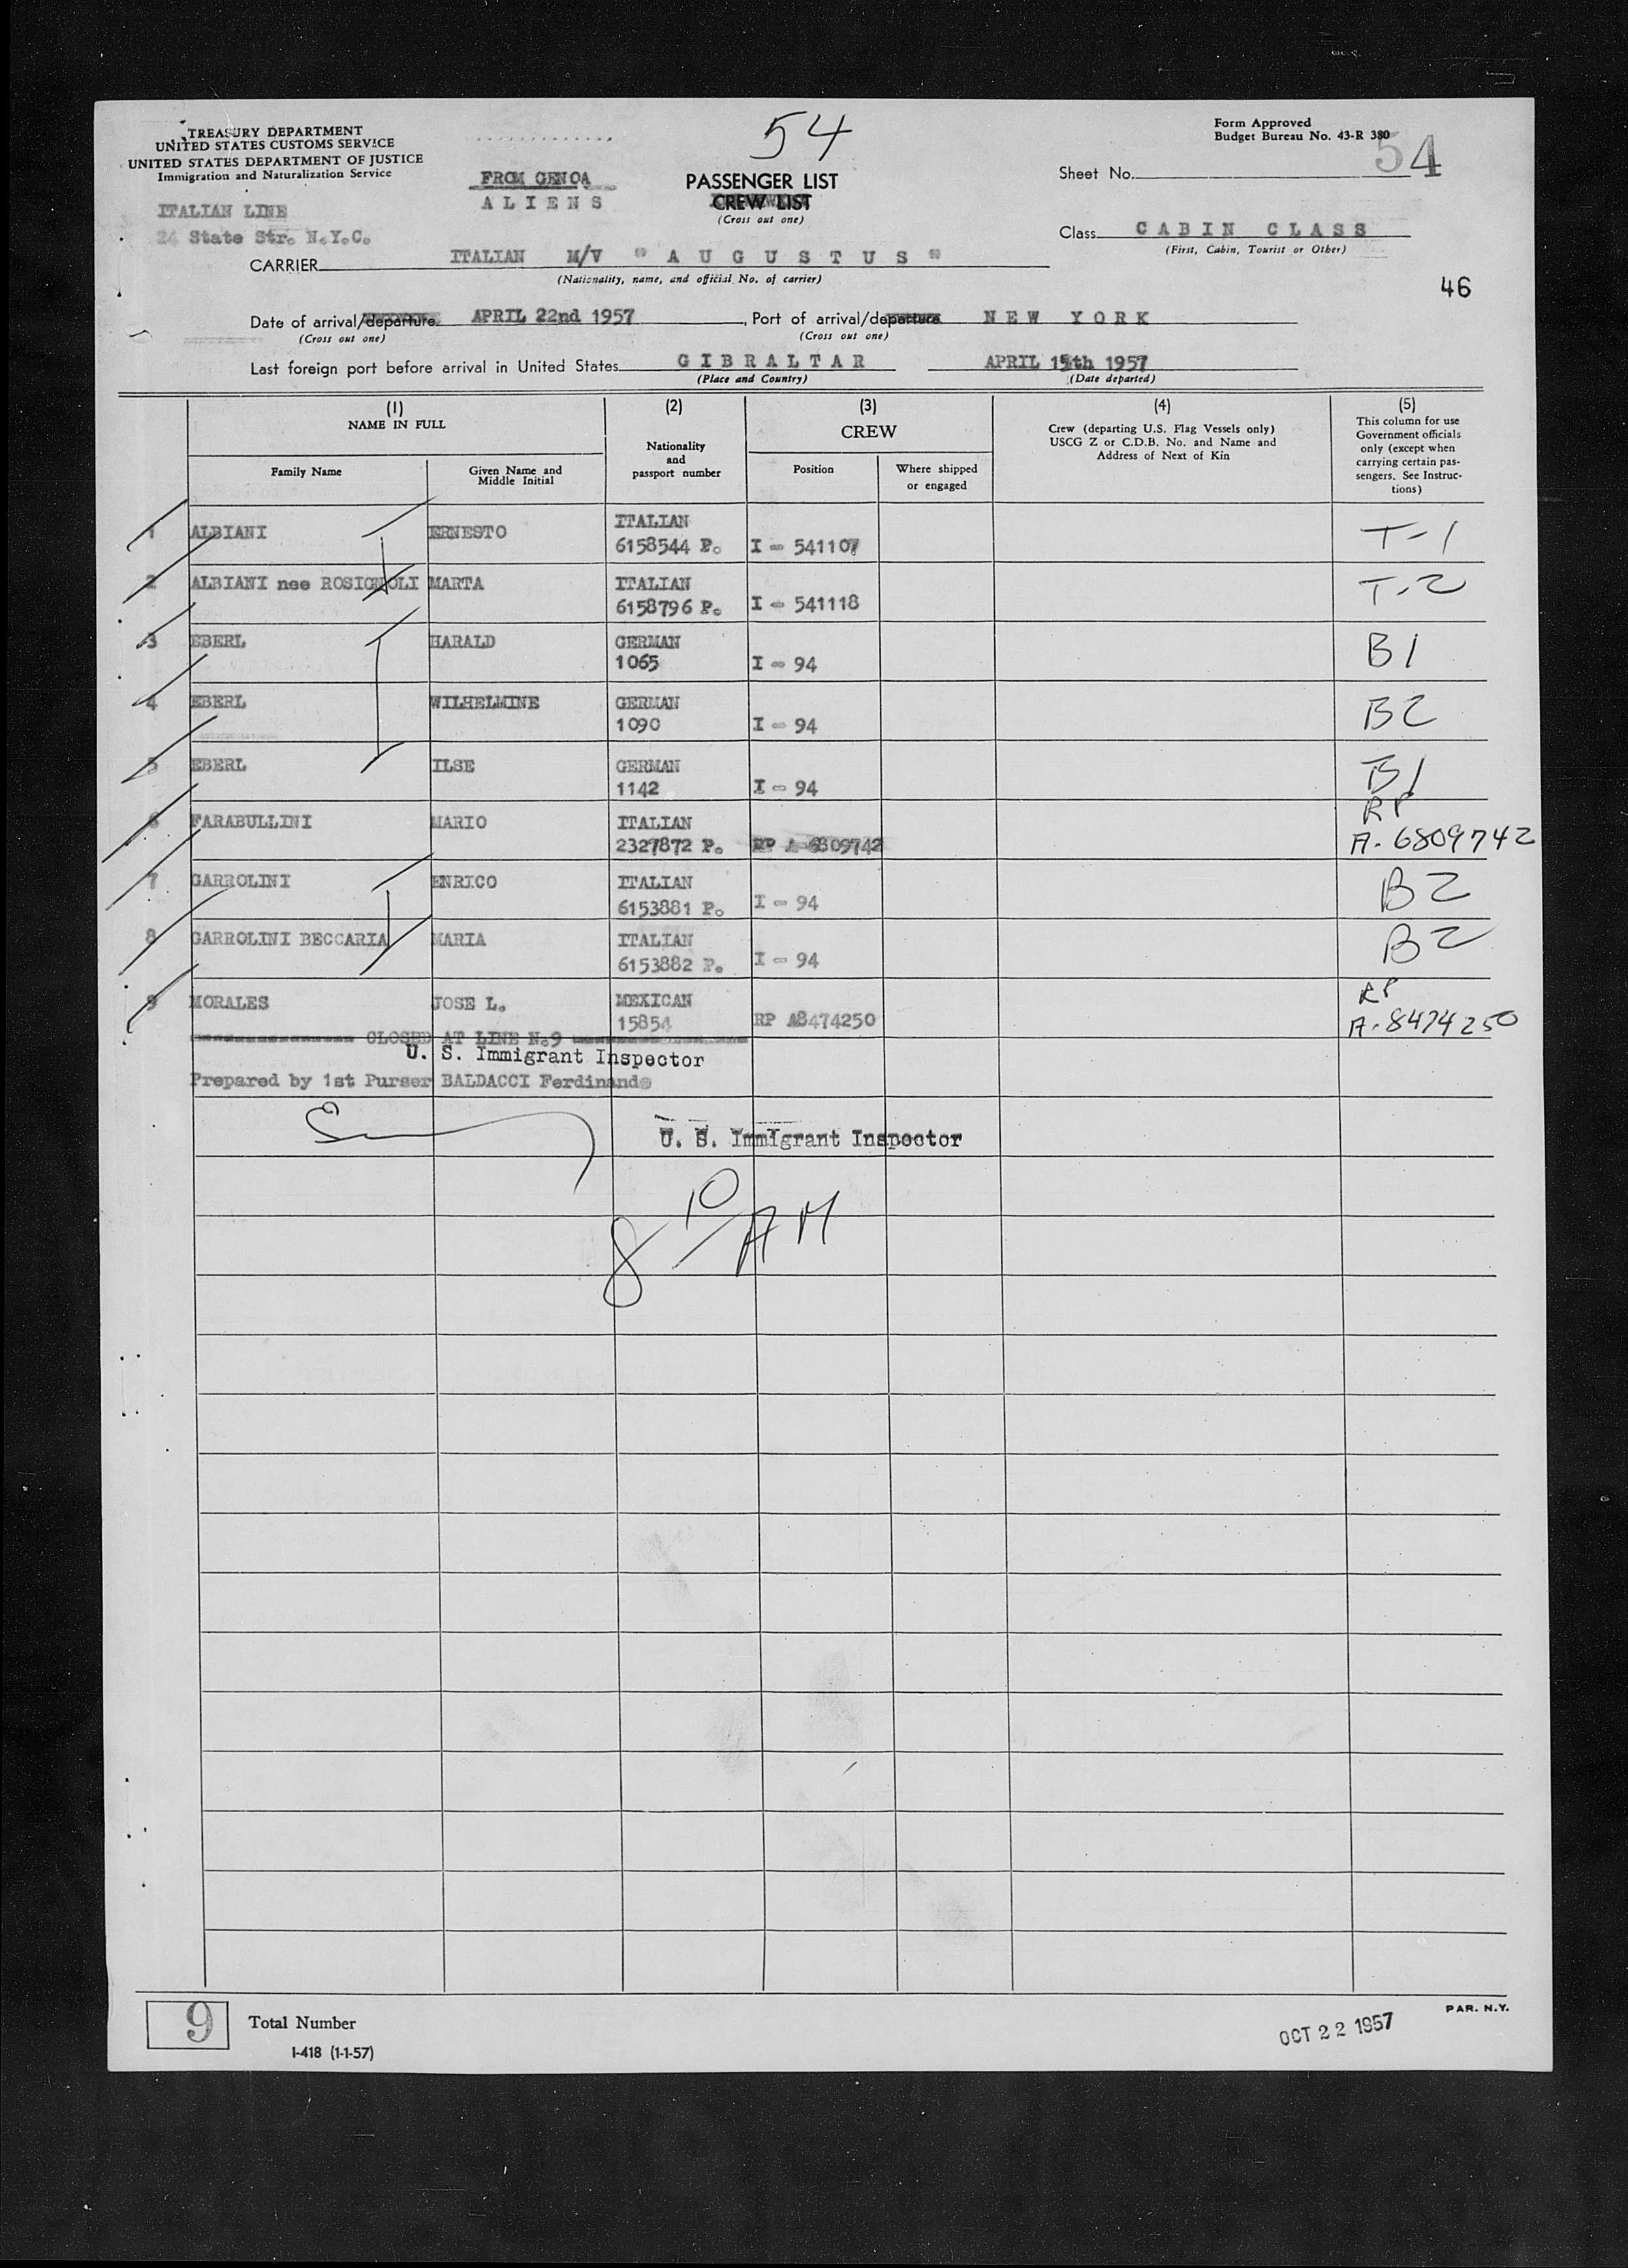 54
TREASURY DEPARTMENT
UNITED STATES CUSTOMS SERVICE
UNITED STATES DEPARTMENT OF JUSTICE
Immigration and Naturalization Service
Form Approved
Budget Bureau No. 43-R 380
FROM GENOA
ALIENS
PASSENGER LIST
CREW LIST
(Cross out one)
Sheet No. 54
ITALIAN LINE
24 State Str. N.Y.C.
Class CABIN CLASS
(First, Cabin, Tourist or Other)
CARRIER ITALIAN M/V "AUGUSTUS"
(Nationality, name, and official No. of carrier)
46
Date of arrival/departure APRIL 22nd 1957, Port of arrival/departure NEW YORK
(Cross out one) (Cross out one)
Last foreign port before arrival in United States GIBRALTAR APRIL 15th 1957
(Place and Country) (Date departed)
(1) (2) (3) (4) (5)
NAME IN FULL
Family Name
Given Name and
Middle Initial
Nationality
and
passport number
CREW
Position
Where shipped
or engaged
Crew (departing U.S. Flag Vessels only)
USCG Z or C.D.B. No. and Name and
Address of Next of Kin
This column for use
Government officials
only (except when
carrying certain pas-
sengers. See Instruc-
tions)
1 ALBIANI ERNESTO ITALIAN T-1
6158544 P. I - 541107
2 ALBIANI nee ROSIGNOLI MARTA ITALIAN T-2
6158796 P. I - 541118
3 EBERL HARALD GERMAN B1
1065 I - 94
4 EBERL WILHELMINE GERMAN B2
1090 I - 94
5 EBERL ILSE GERMAN B1
1142 I - 94
6 FARABULLINI MARIO ITALIAN RP
2327872 P. RP A-6809742 A-6809742
7 GARROLINI ENRICO ITALIAN B2
6153881 P. I - 94
8 GARROLINI BECCARIA MARIA ITALIAN B2
6153882 P. I - 94
9 MORALES JOSE L. MEXICAN RP
15854 RP A8474250 A-8474250
CLOSED AT LINE N.9
U. S. Immigrant Inspector
Prepared by 1st Purser BALDACCI Ferdinando
U. S. Immigrant Inspector
8 10/AM
9 Total Number
I-418 (1-1-57)
PAR. N.Y.
OCT 22 1957